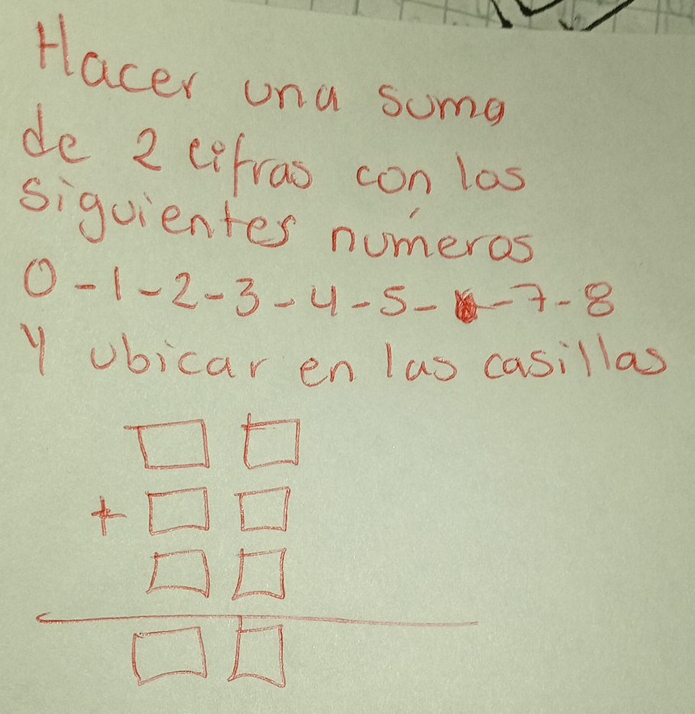 Hacer una suma
de 2 cifras con los
siguientes números
0-1-2-3-4-5- -7-8
y ubicar en las casillas
+